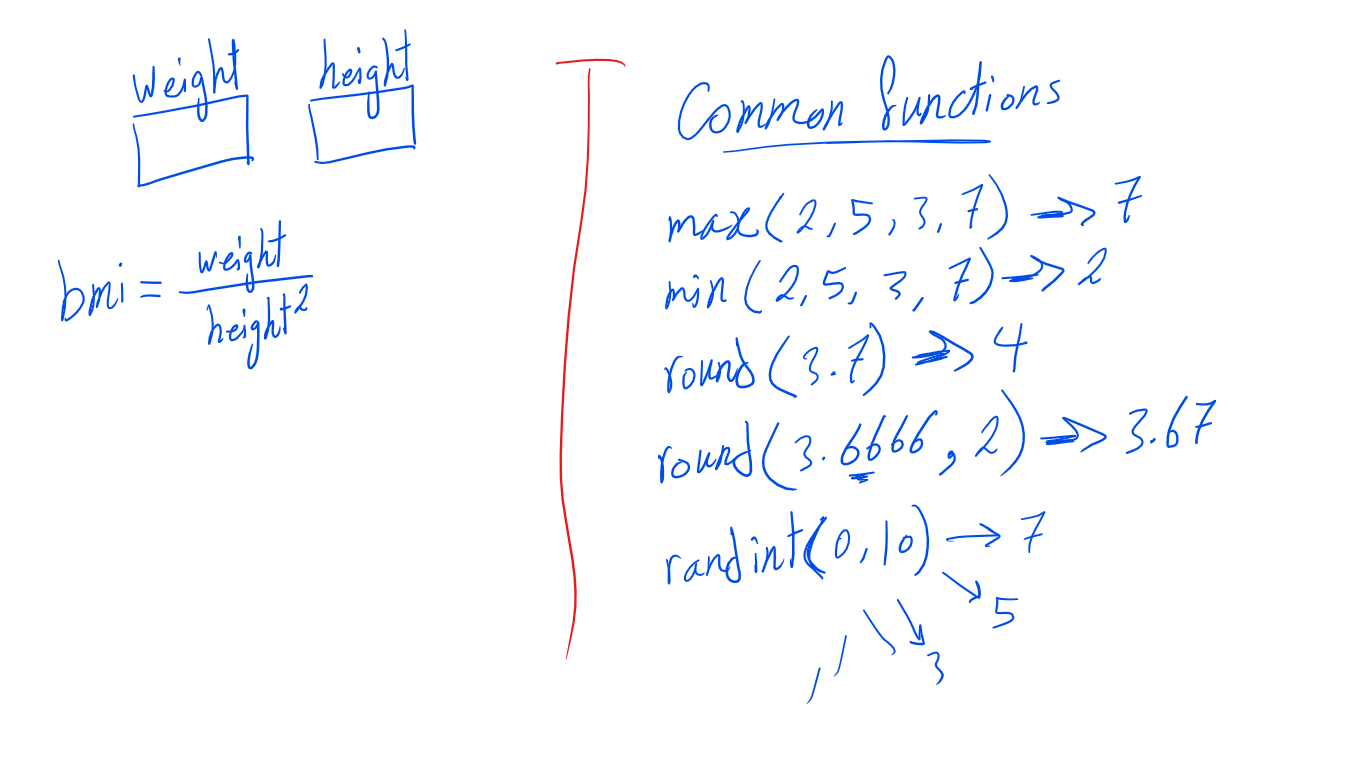 weight height
bmi = weight / height²
Common functions
max(2, 5, 3, 7) → 7
min(2, 5, 3, 7) → 2
round(3.7) → 4
round(3.6666, 2) → 3.67
randint(0, 10) → 7
5
3